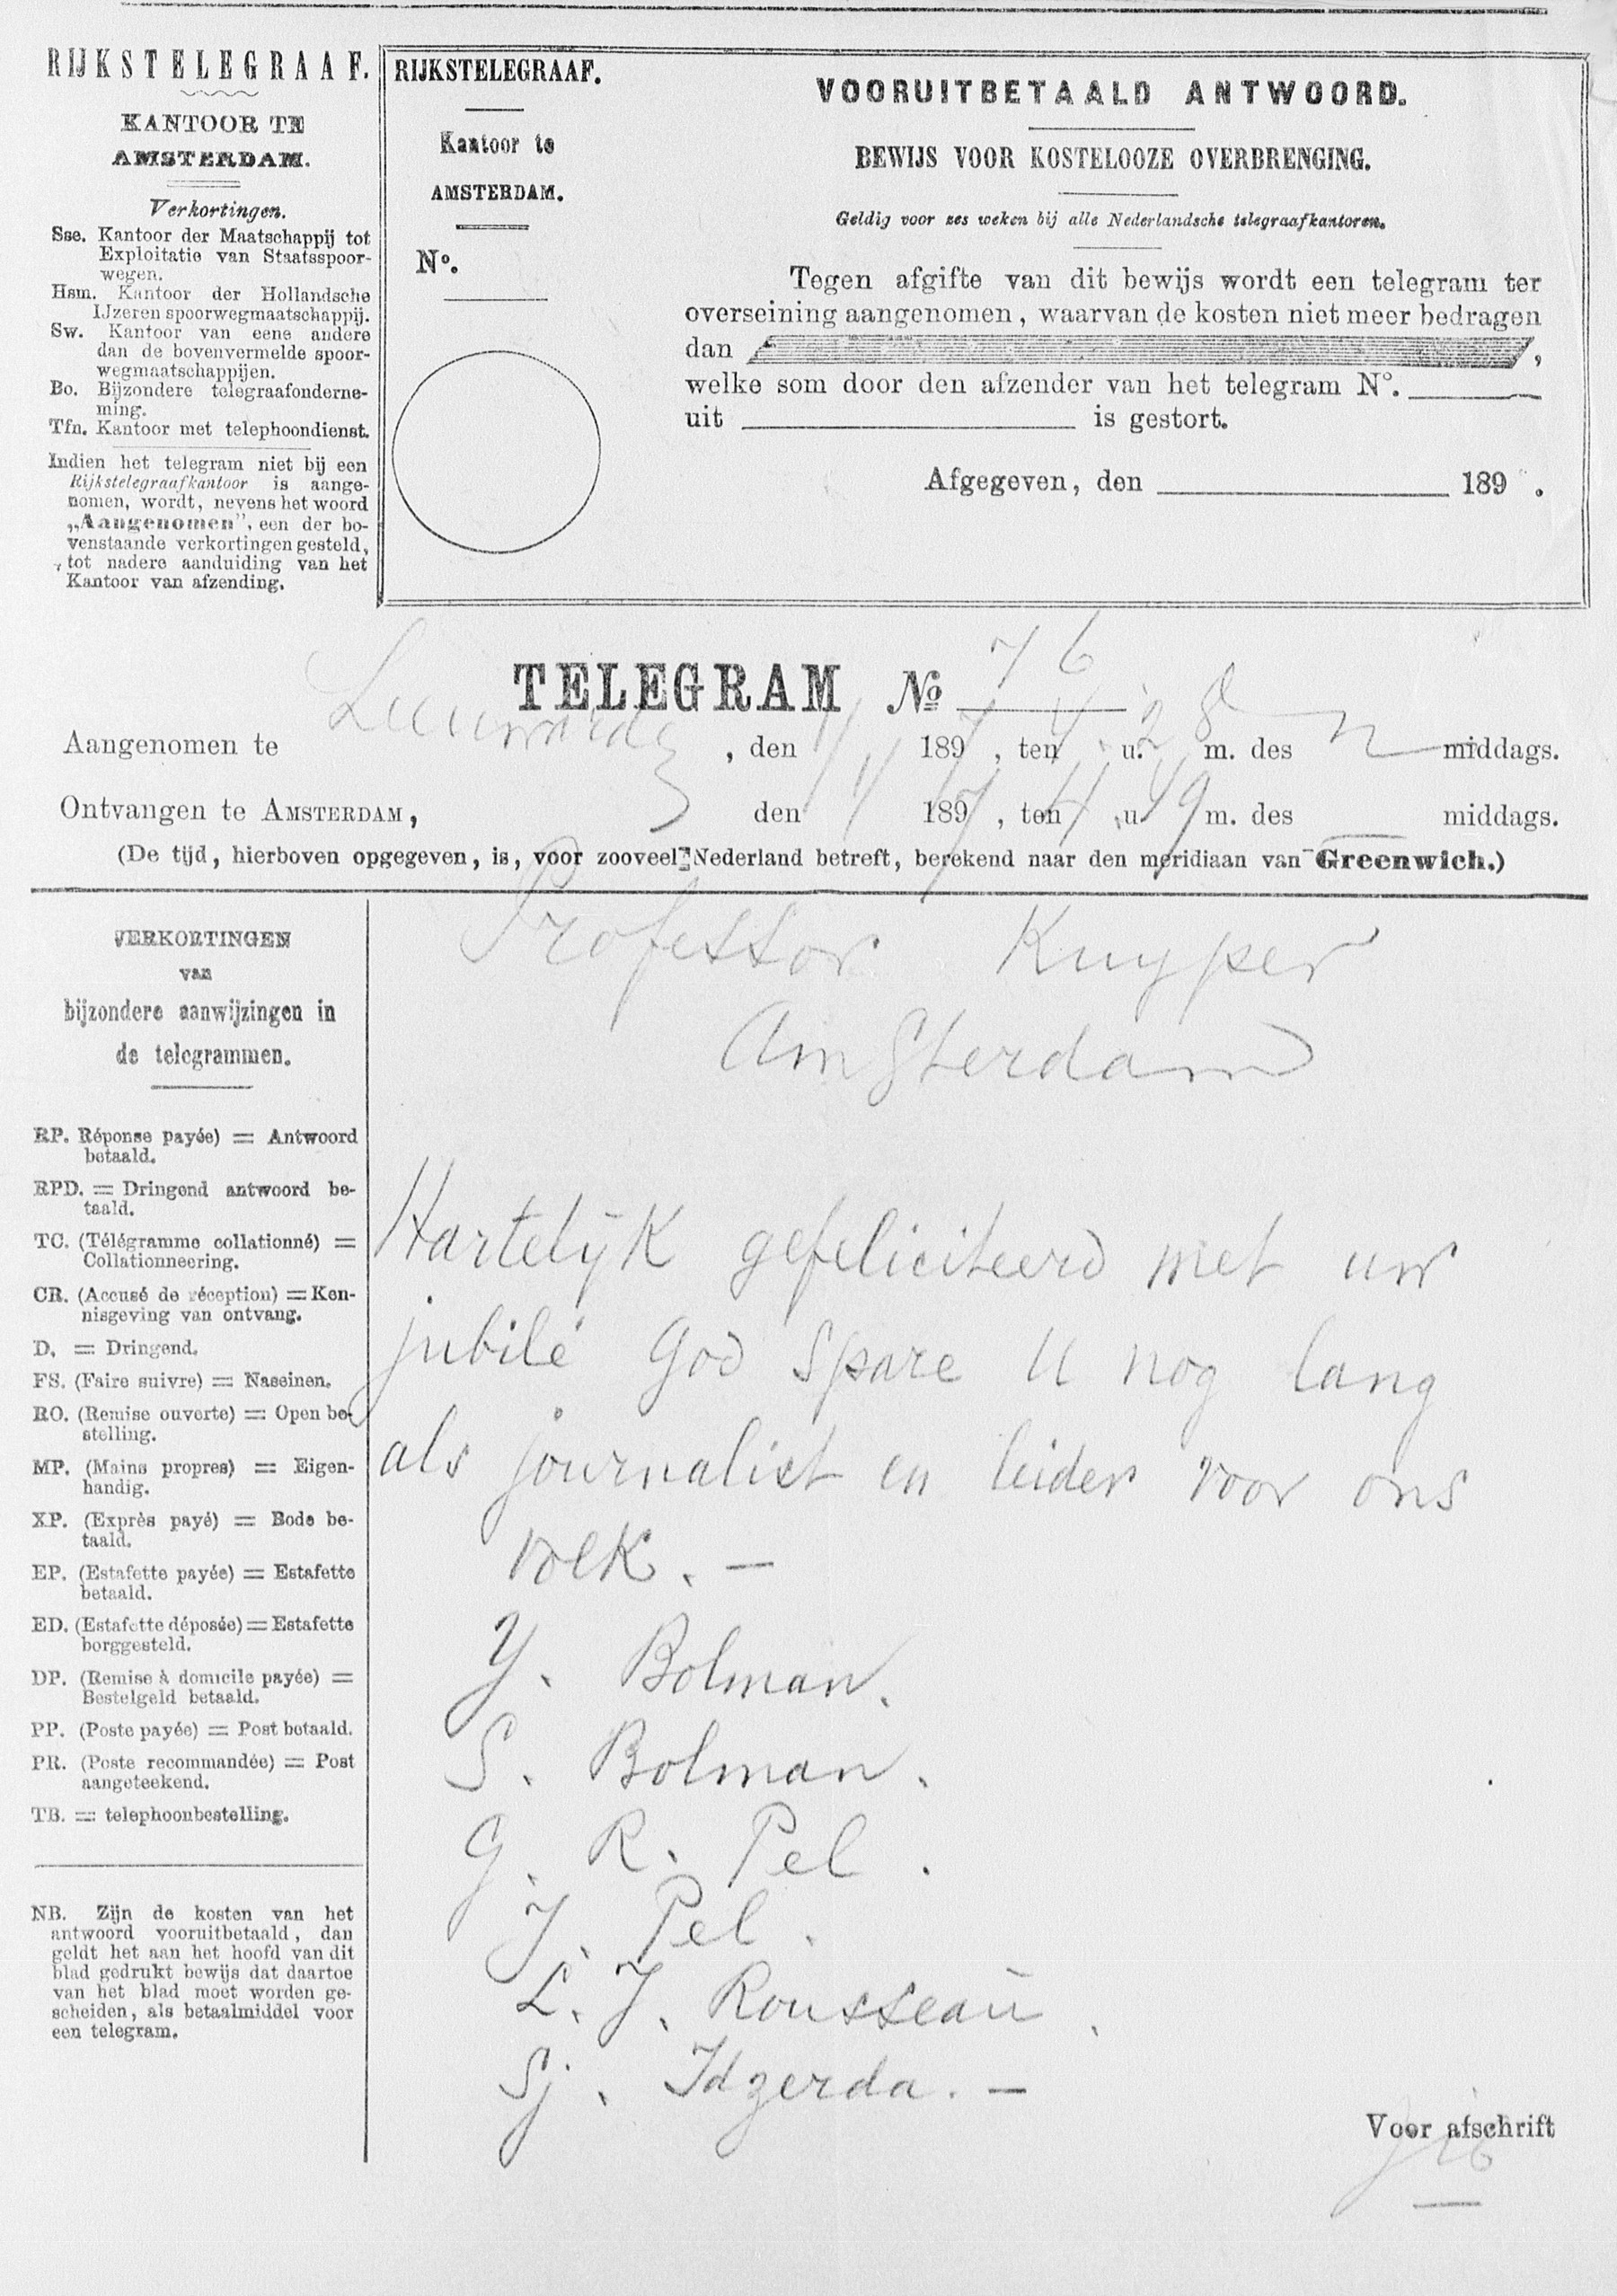 RIJKSTELEGRAAF.
KANTOOR TE
AMSTERDAM.
Verkortingen.
Sse. Kantoor der Maatschappij tot
Exploitatie van Staatsspoor-
wegen.
Hsm. Kantoor der Hollandsche
IJzeren spoorwegmaatschappij.
Sw. Kantoor van eene andere
dan de bovenvermelde spoor-
wegmaatschappijen.
Bo. Bijzondere telegraafonderne-
ming.
Tfn. Kantoor met telephoondienst.
Indien het telegram niet bij een
Rijkstelegraafkantoor is aange-
nomen, wordt, nevens het woord
„Aangenomen”, een der bo-
venstaande verkortingen gesteld,
tot nadere aanduiding van het
Kantoor van afzending.
RIJKSTELEGRAAF.
Kantoor te
AMSTERDAM.
No.
VOORUITBETAALD ANTWOORD.
BEWIJS VOOR KOSTELOOZE OVERBRENGING.
Geldig voor zes weken bij alle Nederlandsche telegraafkantoren.
Tegen afgifte van dit bewijs wordt een telegram ter
overseining aangenomen, waarvan de kosten niet meer bedragen
dan ,
welke som door den afzender van het telegram No.
uit is gestort.
Afgegeven, den 189 .
TELEGRAM No 76
Aangenomen te Leeuwarden, den 1/4 1897, ten 4 u. 28 m. des n middags.
Ontvangen te AMSTERDAM, den 1/4 1897, ten 4 u. 49 m. des middags.
(De tijd, hierboven opgegeven, is, voor zooveel Nederland betreft, berekend naar den meridiaan van Greenwich.)
VERKORTINGEN
van
bijzondere aanwijzingen in
de telegrammen.
RP. Réponse payée) = Antwoord
betaald.
RPD. = Dringend antwoord be-
taald.
TC. (Télégramme collationné) =
Collationneering.
CR. (Accusé de réception) = Ken-
nisgeving van ontvang.
D. = Dringend.
FS. (Faire suivre) = Naseinen.
RO. (Remise ouverte) = Open be-
stelling.
MP. (Mains propres) = Eigen-
handig.
XP. (Exprès payé) = Bode be-
taald.
EP. (Estafette payée) = Estafette
betaald.
ED. (Estafette déposée) = Estafette
borggesteld.
DP. (Remise à domicile payée) =
Bestelgeld betaald.
PP. (Poste payée) = Post betaald.
PR. (Poste recommandée) = Post
aangeteekend.
TB. = telephoonbestelling.
NB. Zijn de kosten van het
antwoord vooruitbetaald, dan
geldt het aan het hoofd van dit
blad gedrukt bewijs dat daartoe
van het blad moet worden ge-
scheiden, als betaalmiddel voor
een telegram.
Professor Kuyper
Amsterdam
Hartelijk gefeliciteerd met uw
jubilé God spare U nog lang
als journalist en leider voor ons
volk. –
Y. Bolman.
S. Bolman.
G. R. Pel.
J. Pel.
L. J. Rousseau.
Sj. Idzerda. –
Voor afschrift